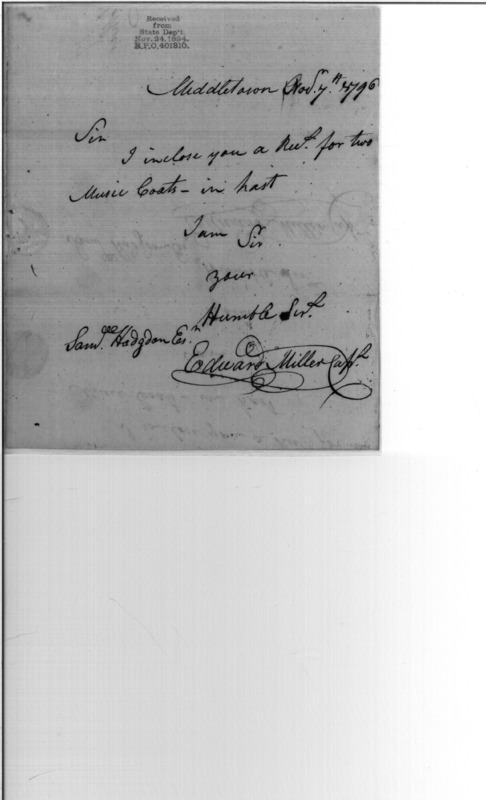 Received
from
State Dep't
Nov. 24, 1894.
R.P.O. 401810.
Middletown Nov.r 7.th 1796
Sir
I inclose you a Rec.t for two
Music Coats - in hast
I am Sir
your
Humble Ser.t
Sam.ll Hodgdon Es.r
Edward Miller Cap.t